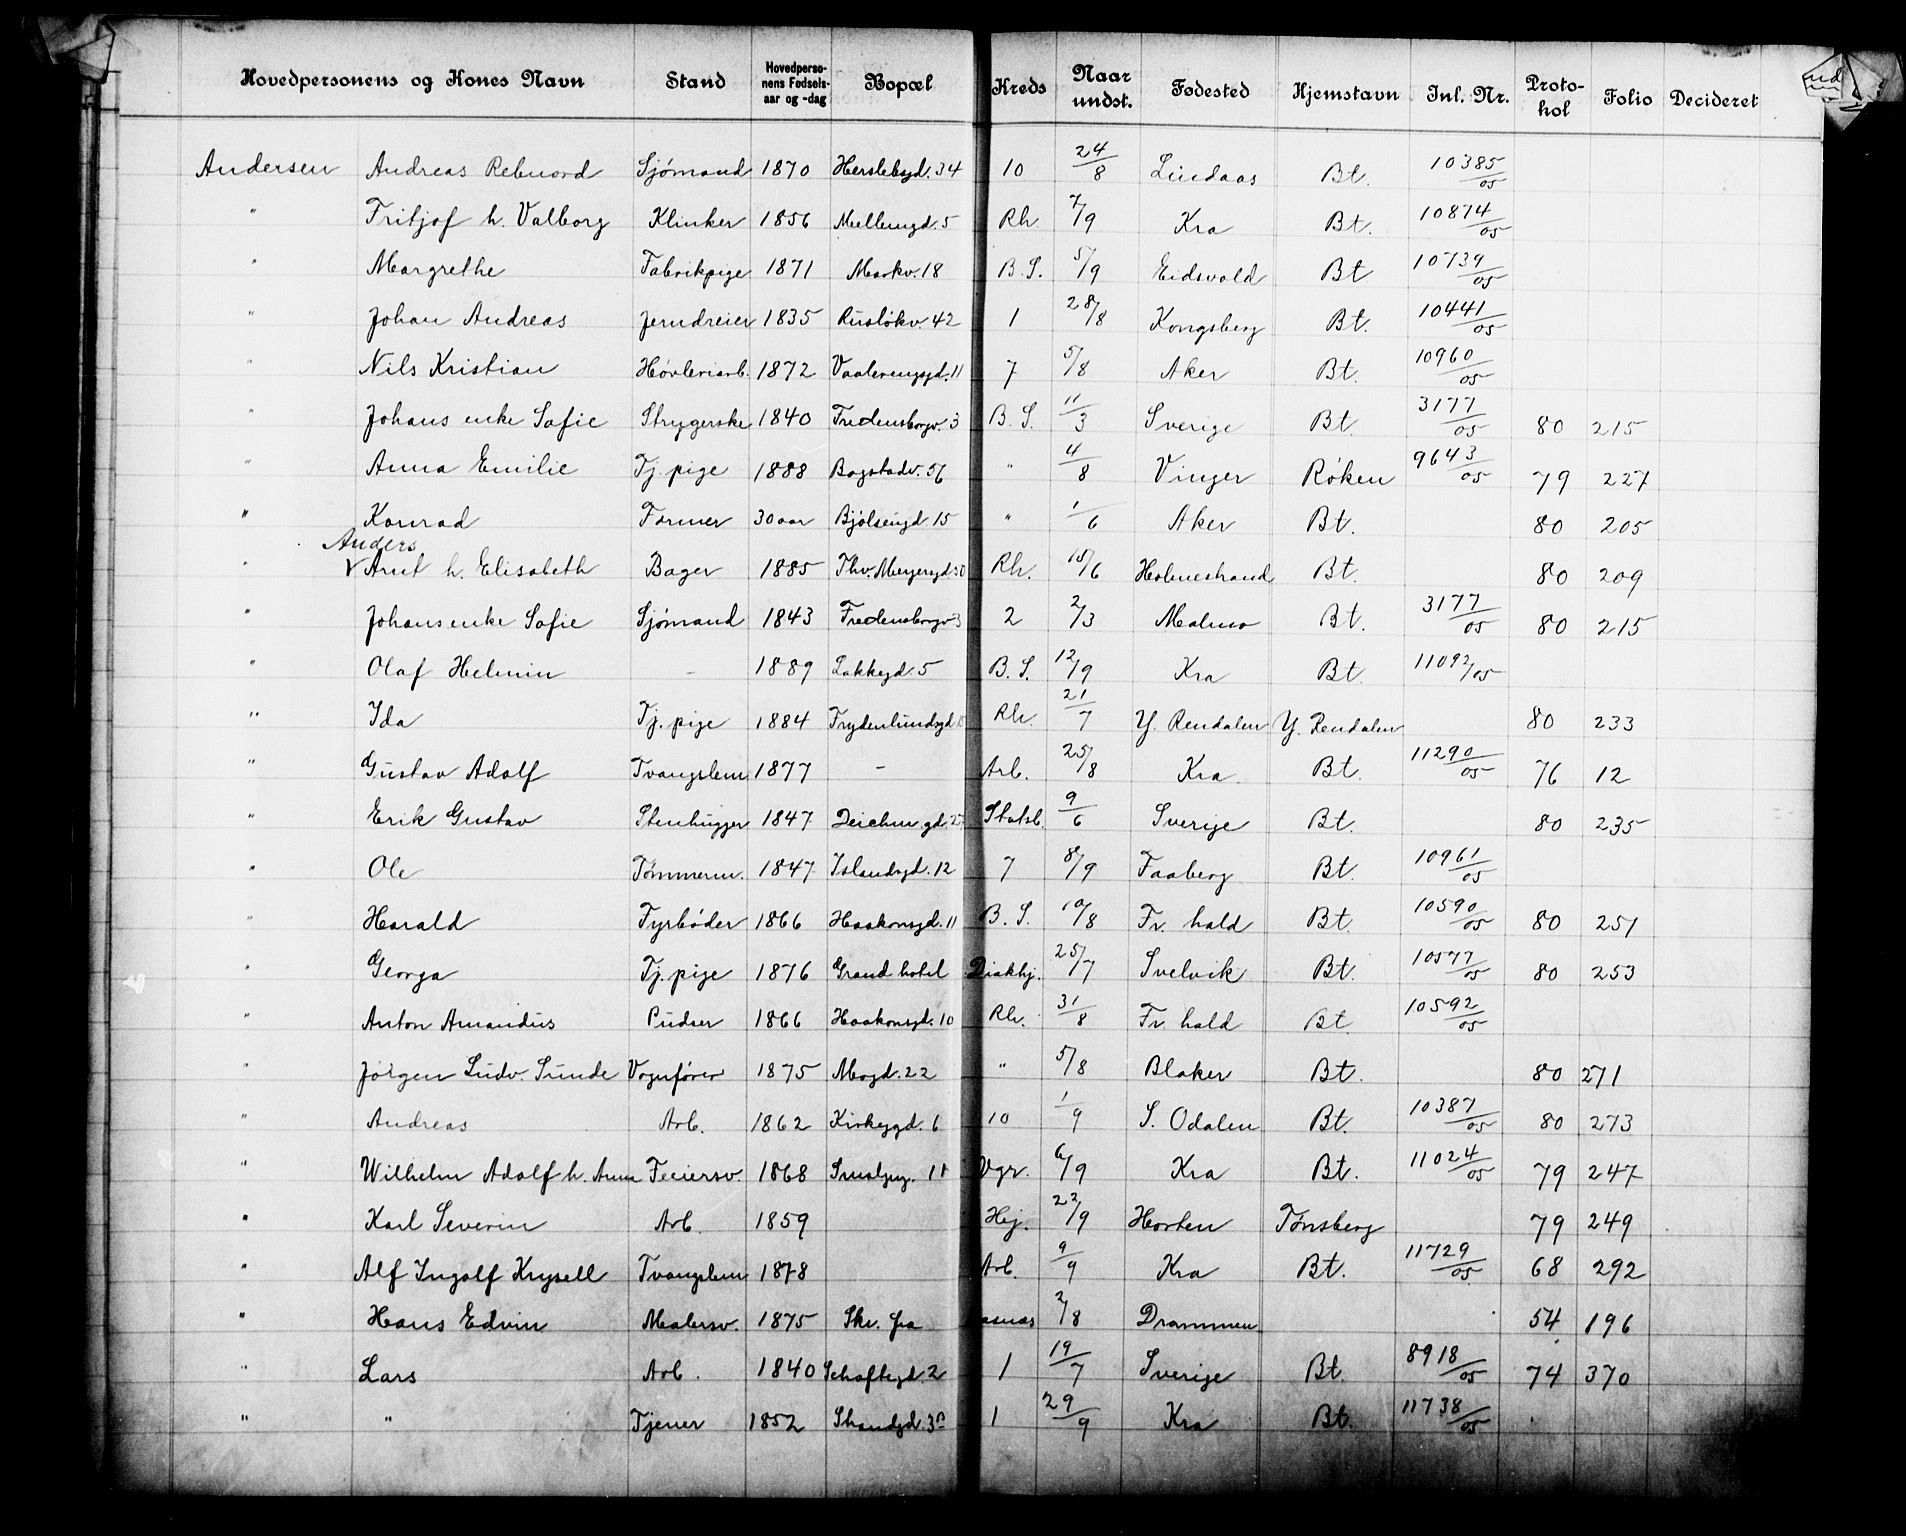 Hovedpersonens og Kones Navn Stand Hovedpersonens Fødselsaar og -dag Bopæl Kreds Naar undst. Fødested Hjemstavn Inl. Nr. Protokol Folio Decideret
Andersen Andreas Rebnord Sjømand 1870 Herslebsgd. 34 10 24/8 Lindaas Bt. 10385/05
" Fritjof h. Valborg Klinker 1856 Mellemgd. 5 Rh. 7/9 Kra Bt. 10874/05
" Margrethe Fabrikpige 1871 Markv. 18 B. S. 5/9 Eidsvold Bt 10739/05
" Johan Andreas Jerndreier 1835 Rusløkv. 42 1 28/8 Kongsberg Bt. 10441/05
" Nils Kristian Høvleriarb. 1872 Vaalerengsgd. 11 7 5/8 Aker Bt. 10960/05
" Johans enke Sofie Strygerske 1840 Fredensborgv. 3 B. S. 11/3 Sverige Bt. 3177/05 80 215
" Anna Emilie Tj. pige 1888 Bogstadv. 56 " 4/8 Vinger Røken 9643/05 79 227
" Konrad Former 30 aar Bjølsengd. 15 " 1/6 Aker Bt. 80 205
Anders
" V Arnt h. Elisabeth Bager 1885 Thv. Meyersgd. 50 Rh. 10/6 Holmestrand Bt. 80 209
" Johans enke Sofie Sjømand 1843 Fredensborgv 3 2 2/3 Malmø Bt. 3177/05 80 215
" Olaf Helmin - 1889 Lakkegd. 5 B. S. 12/9 Kra Bt. 11092/05
" Ida Tj. pige 1884 Frydenlundsgd Rh. 21/7 Y. Rendalen Y. Rendalen 80 233
" Gustav Adolf Tvangslem 1877 - Arb. 25/8 Kra Bt. 11290/05 76 12
" Erik Gustav Stenhugger 1847 Deichm. gd. Statsb. 9/6 Sverige Bt. 80 235
" Ole Tømmerm. 1847 Islandsgd. 12 7 8/9 Faaberg Bt. 10961/05
" Harald Fyrbøder 1866 Haakonsgd. 11 B. S. 10/8 Fr. hald Bt. 10590/05 80 251
" Georga Tj. pige 1876 Grand hotel Diakhj. 25/7 Svelvik Bt. 10577/05 80 253
" Anton Amandus Pudser 1866 Haakonsgd. 10 Rh. 31/8 Fr. hald Bt. 10592/05
" Jørgen Ludv. Sunde Vognfører 1875 Mogd. 22 " 5/8 Blaker Bt. 80 271
" Andreas Arb. 1862 Kirkegd. 6 10 1/9 S. Odalen Bt. 10387/05 80 273
" Wilhelm Adolf h. Anna Feiersv. 1868 11 Vgr. 6/9 Kra Bt. 11024/05 79 247
" Karl Severin Arb. 1859 Hej. 22/9 Horten Tønsberg 79 249
" Alf Ingolf Krysell Tvangslem 1878 Arb. 9/9 Kra Bt. 11729/05 68 292
" Hans Edvin Malersv. 1875 Skr. fra 2/8 Drammen 54 196
" Lars Arb. 1840 Schaftegd. 2 1 19/7 Sverige Bt. 8918/05 74 370
" " Tjener 1852 Strandgd. 1 29/9 Kra Bt. 11738/05